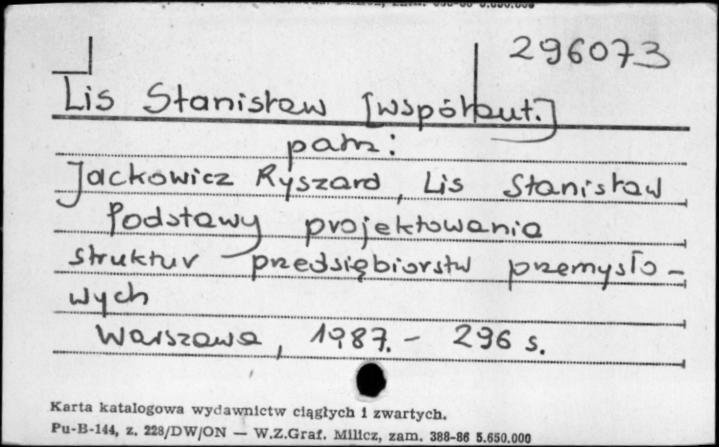 296073
Lis Stanisław [współaut.]
patrz:
Jackowicz Ryszard, Lis Stanisław
Podstawy projektowania
struktur przedsiębiorstw przemysło-
wych
Warszawa, 1987. - 296 s.
Karta katalogowa wydawnictw ciągłych i zwartych.
Pu-B-144, z. 228/DW/ON — W.Z.Graf. Milicz, zam. 388-86 5.650.000